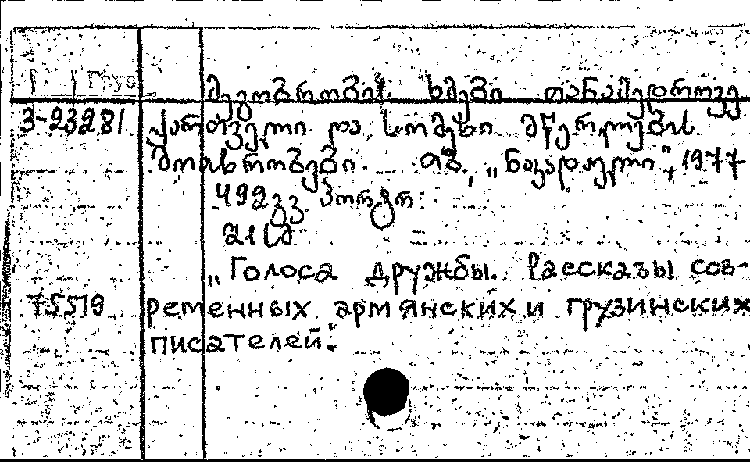 მეგობრობის ხმები თანამედროვე
3-23281 ქართველი და სომეხი მწერლების
მოთხრობები. თბ., „ნაკადული", 1977
492გვ. პორტრ.
21სმ
„Голоса дружбы. Рассказы сов-
75519 ременных армянских и грузинских
писателей".